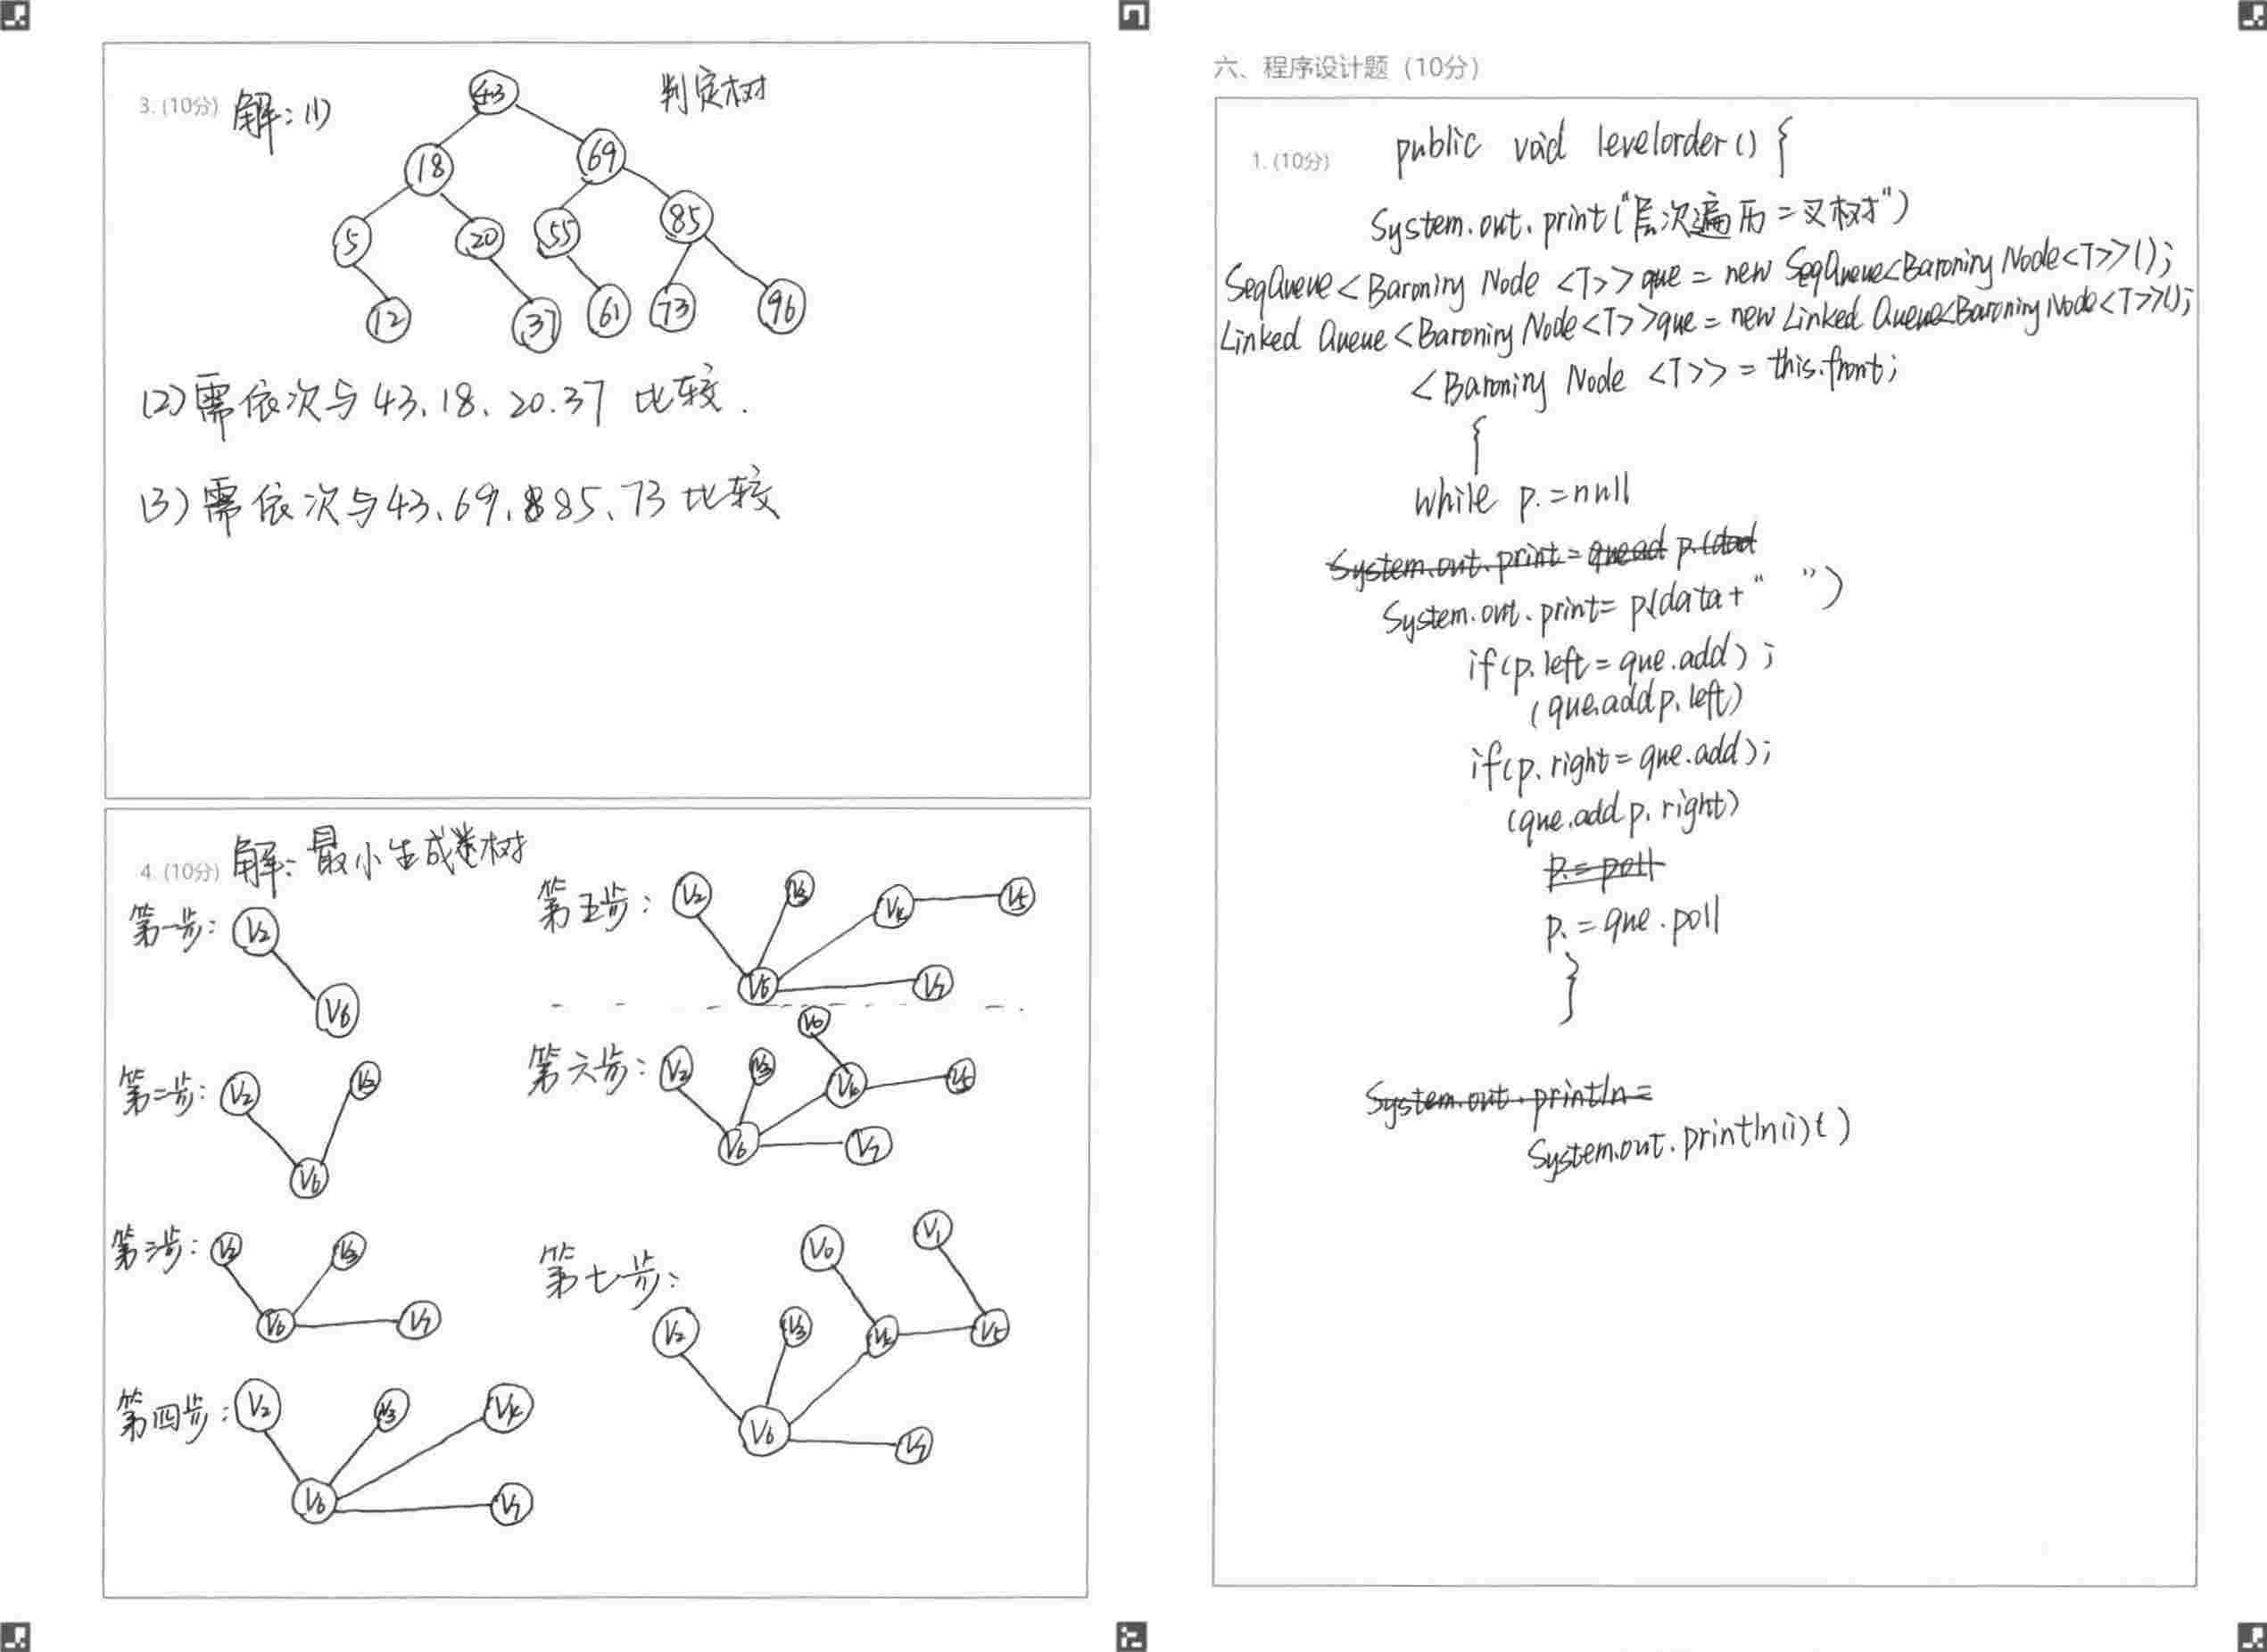 3. (10分) 解: (1) 判定树
43
18 69
5 20 55 85
12 37 61 73 96
(2) 需依次与 43、18、20、37 比较.
(3) 需依次与 43、69、85、73 比较
4. (10分) 解: 最小生成树
第一步: V2 V6
第二步: V2 V3 V6
第三步: V2 V3 V6 V7
第四步: V2 V3 V4 V6 V7
第五步: V2 V3 V4 V5 V6 V7
第六步: V0 V2 V3 V4 V5 V6 V7
第七步: V0 V1 V2 V3 V4 V5 V6 V7
六、程序设计题 (10分)
1. (10分) public void levelorder() {
System.out.print("层次遍历二叉树")
SeqQueue<Baroniry Node <T>> que = new SeqQueue<Baroniry Node<T>>();
Linked Queue<Baroniry Node<T>>que = new Linked Queue<Baroniry Node<T>>();
<Baroniry Node <T>> = this.front;
{
while p.=null
System.out.print=
System.out.print= p.(data+" ")
if(p.left=que.add);
(que.add p.left)
if(p.right=que.add);
(que.add p.right)
p.=poll
p.=que.poll
}
System.out.println=
System.out.println(i)()